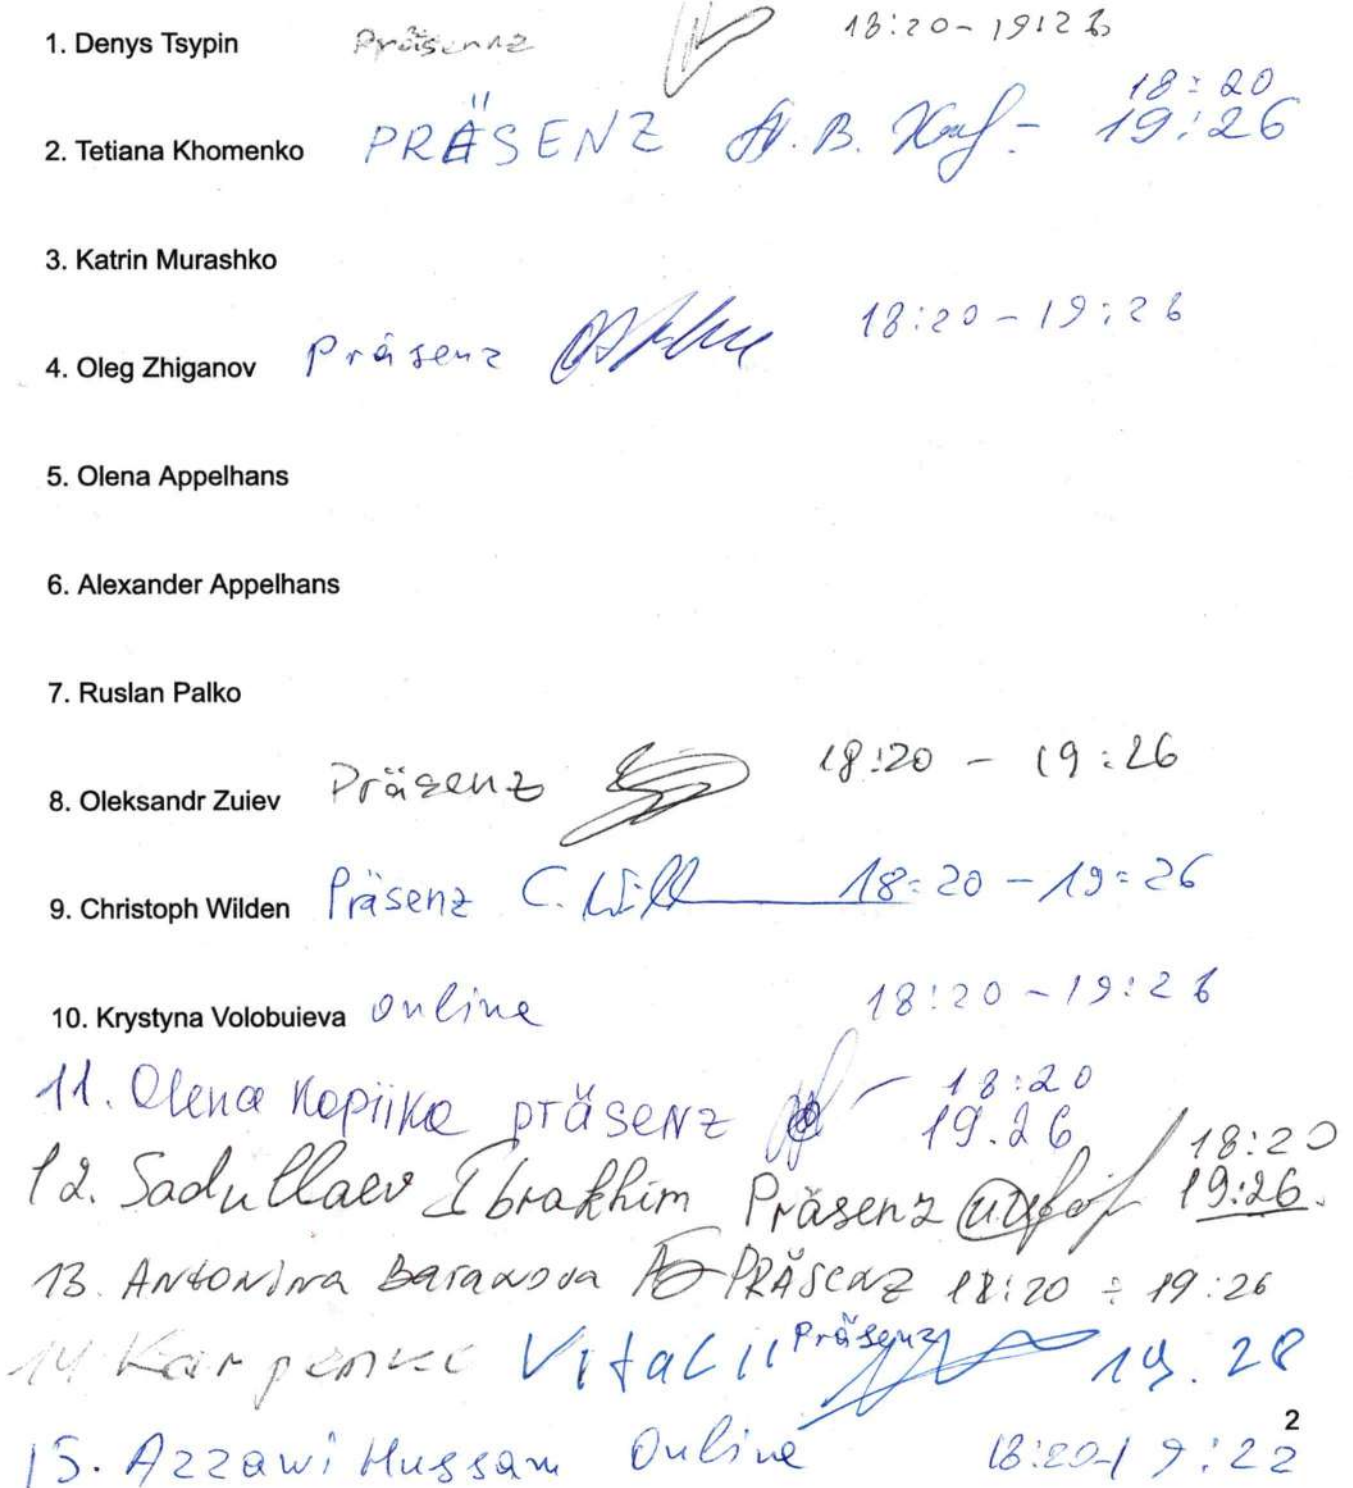 1. Denys Tsypin Präsennz 18:20 - 19:26
18:20
2. Tetiana Khomenko PRÄSENZ - 19:26
3. Katrin Murashko
4. Oleg Zhiganov Präsenz 18:20 - 19:26
5. Olena Appelhans
6. Alexander Appelhans
7. Ruslan Palko
8. Oleksandr Zuiev Präsenz 18:20 - 19:26
9. Christoph Wilden Präsenz 18:20 - 19:26
10. Krystyna Volobuieva Online 18:20 - 19:26
11. Olena Kopiika präsenz - 18:20
19.26
12. Sadullaev Ibrakhim Präsenz 18:20
19:26.
13. Antonina Baranova PRÄSENZ 18:20 ÷ 19:26
14 Karpenko Vitalii Präsenz 19.28
2
15. Azzawi Hussam Online 18:20-19:22